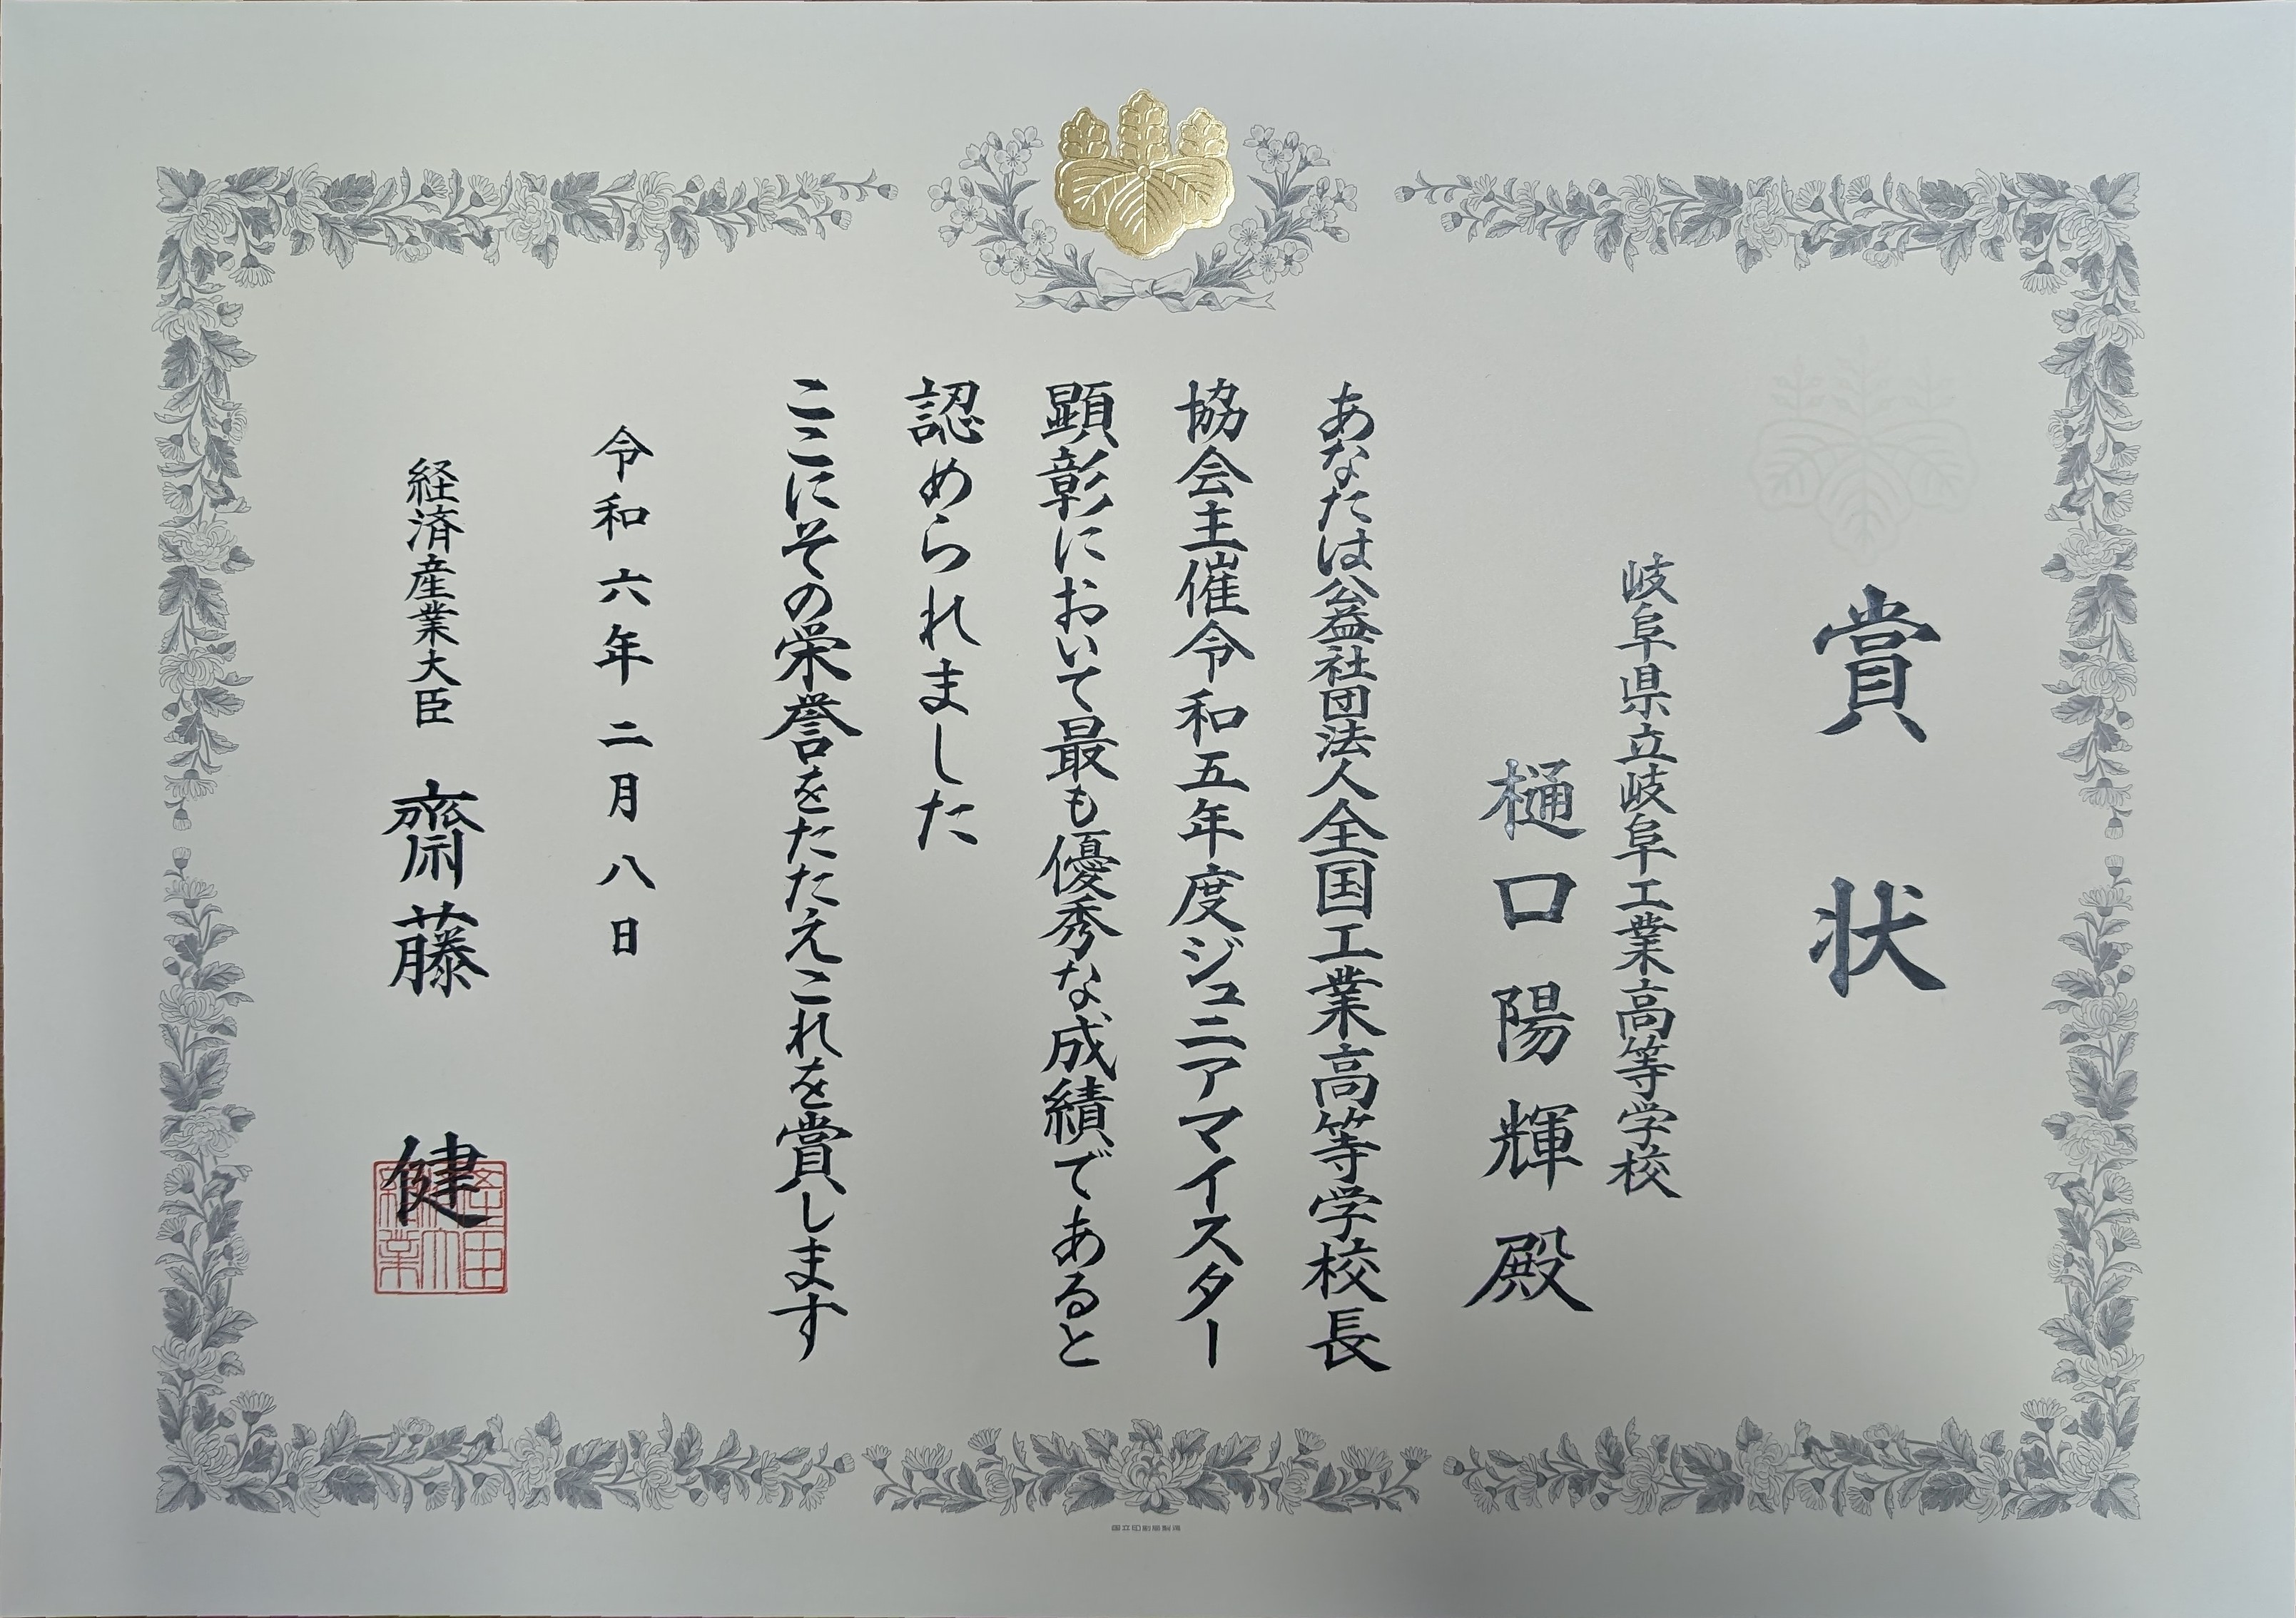 賞状
岐阜県立岐阜工業高等学校
樋口陽輝殿
あなたは公益社団法人全国工業高等学校長
協会主催令和五年度ジュニアマイスター
顕彰において最も優秀な成績であると
認められました
ここにその栄誉をたたえこれを賞します
令和六年二月八日
経済産業大臣 齋藤健
国立印刷局製造